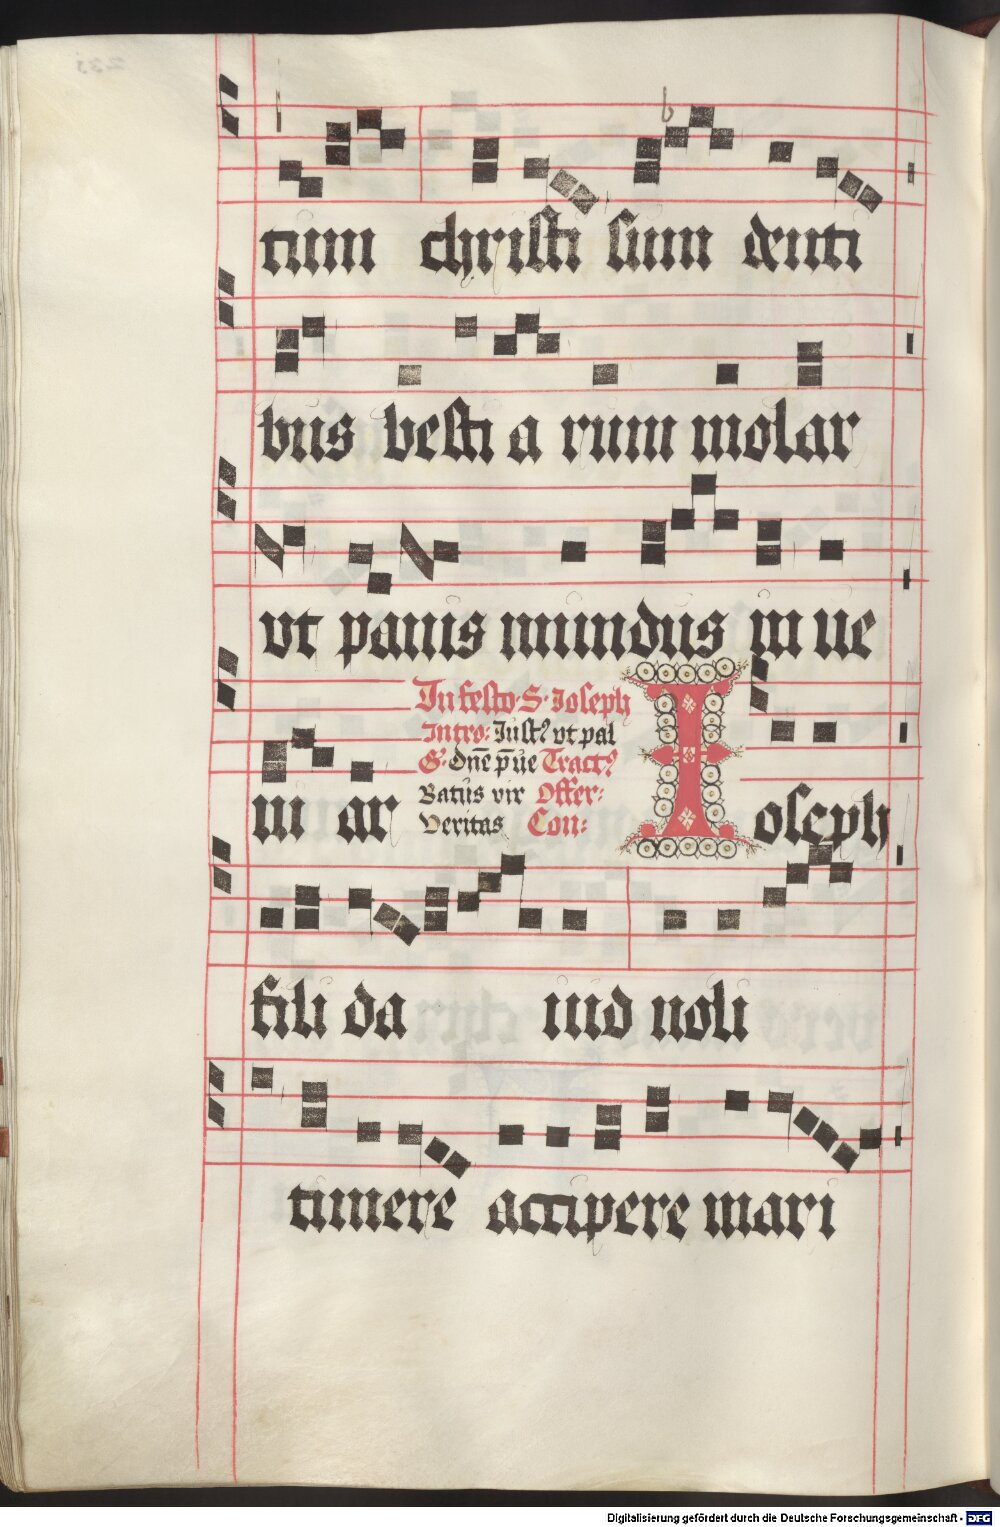 tum christi sum denti
bus besti a rum molar
vt panis mundus in ue
In festo S. Ioseph
Intro: Iust9 vt pal
G. Dnē p̄ue Tract9
Batus vir Offer:
Veritas Con:
ni ar Ioseph
fili da uid noli
timere accipere mari
Digitalisierung gefördert durch die Deutsche Forschungsgemeinschaft - DFG